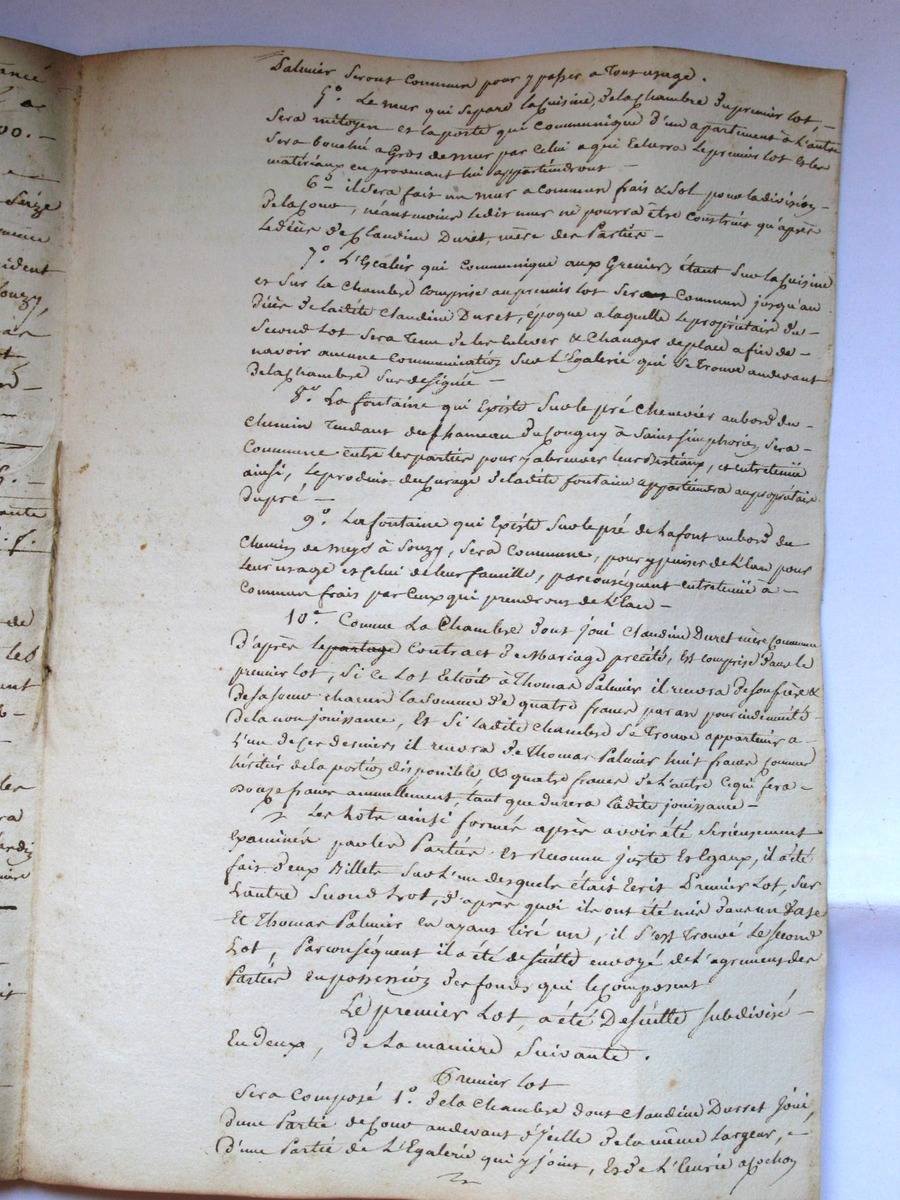 Palmier Seront Commun pour y passer a Tout usage.
5°. Le mur qui Separe la Cuisine de la Chambre du premier lot, -
Sera mitoyen et la porte qui Communique d'un apartement à L'autre
Sera bouché a Gros de mur par Celui a qui Echerra le premier lot Et les
matériaux en provenant lui appartiendront -
6°. il Sera fait un mur a Commun frais & Sol pour la division -
de la Cour, néant moins le dit mur ne pourra être Construit qu'après
Le décès de Claudine Duret, mère des Parties -
7°. L'Ecalier qui Communique aux Greniers étant Sur la Cuisine
et Sur la Chambre Comprise au premier lot Sera Commun jusqu'au
décès de la dite Claudine Duret, époque a laquelle le propriétaire du -
Second Lot Sera Tenu de les Enlever & Changer de place afin de -
navoir aucune Communication Sur L'Egalerie qui Se Trouve au devant
de la Chambre Sus designée -
8°. La fontaine qui Existe Sur le pré Chenevier au bord du -
Chemin Tendant du hameau de Souzy à Saint Simphorien Sera -
Commune entre les parties pour y abreuver leurs Bestiaux, et entretenüe
ainsi, le produit du Curage de la dite fontaine appartiendra au propriétaire
du pré -
9°. La fontaine qui Existe Sur le pré de La font au bord du
Chemin de Meys à Souzy, Sera Commune, pour y puiser de L'Eau pour
leur usage et Celui de leur famille, par conséquent entretenüe à -
Commun frais par Ceux qui prendrons de L'Eau -
10°. Comme La Chambre dont joui Claudine Duret mère Commune
D'après le partage Contract de Mariage precité, Est comprise dans le
premier lot, Si Ce Lot Echoit à Thomas Palmier il recevra de Son frère &
de Sa Sœur chacun la Somme de quatre francs par an pour indemnité -
de la non jouissance, Et Si la dite Chambre Se Trouve appartenir a -
L'un de Ces derniers il recevra de Thomas Palmier huit francs Comme
héritier de la portion disponible, & quatre francs de L'autre Ce qui fera -
Douze francs annuellement, tant que durera la dite jouissance -
Les Lots ainsi formés après avoir été Serieusement
Examinés par les Parties Et Reconnu justes Et Egaux, il a été
fait deux Billets Sur L'un desquels était Ecrit Premier Lot, Sur
L'autre Second Lot, d'après quoi ils ont été mis dans un Vase
Et Thomas Palmier en ayant tiré un, il S'est Trouvé le Second
Lot, Par conséquent il a été de Suitte envoyé de L'agrement des
Parties en possession des fonds qui le composent
Le premier Lot, a été De Suitte Subdivisé -
En deux, de La maniere Suivante.
Premier lot
Sera Composé 1°. de la Chambre dont Claudine Durret Joui,
d'une Partie de Cour au devant d'Icelle de la même Largeur, -
d'une Partie de L'Egalerie qui y joint, Et de L'Ecurie a Cochon